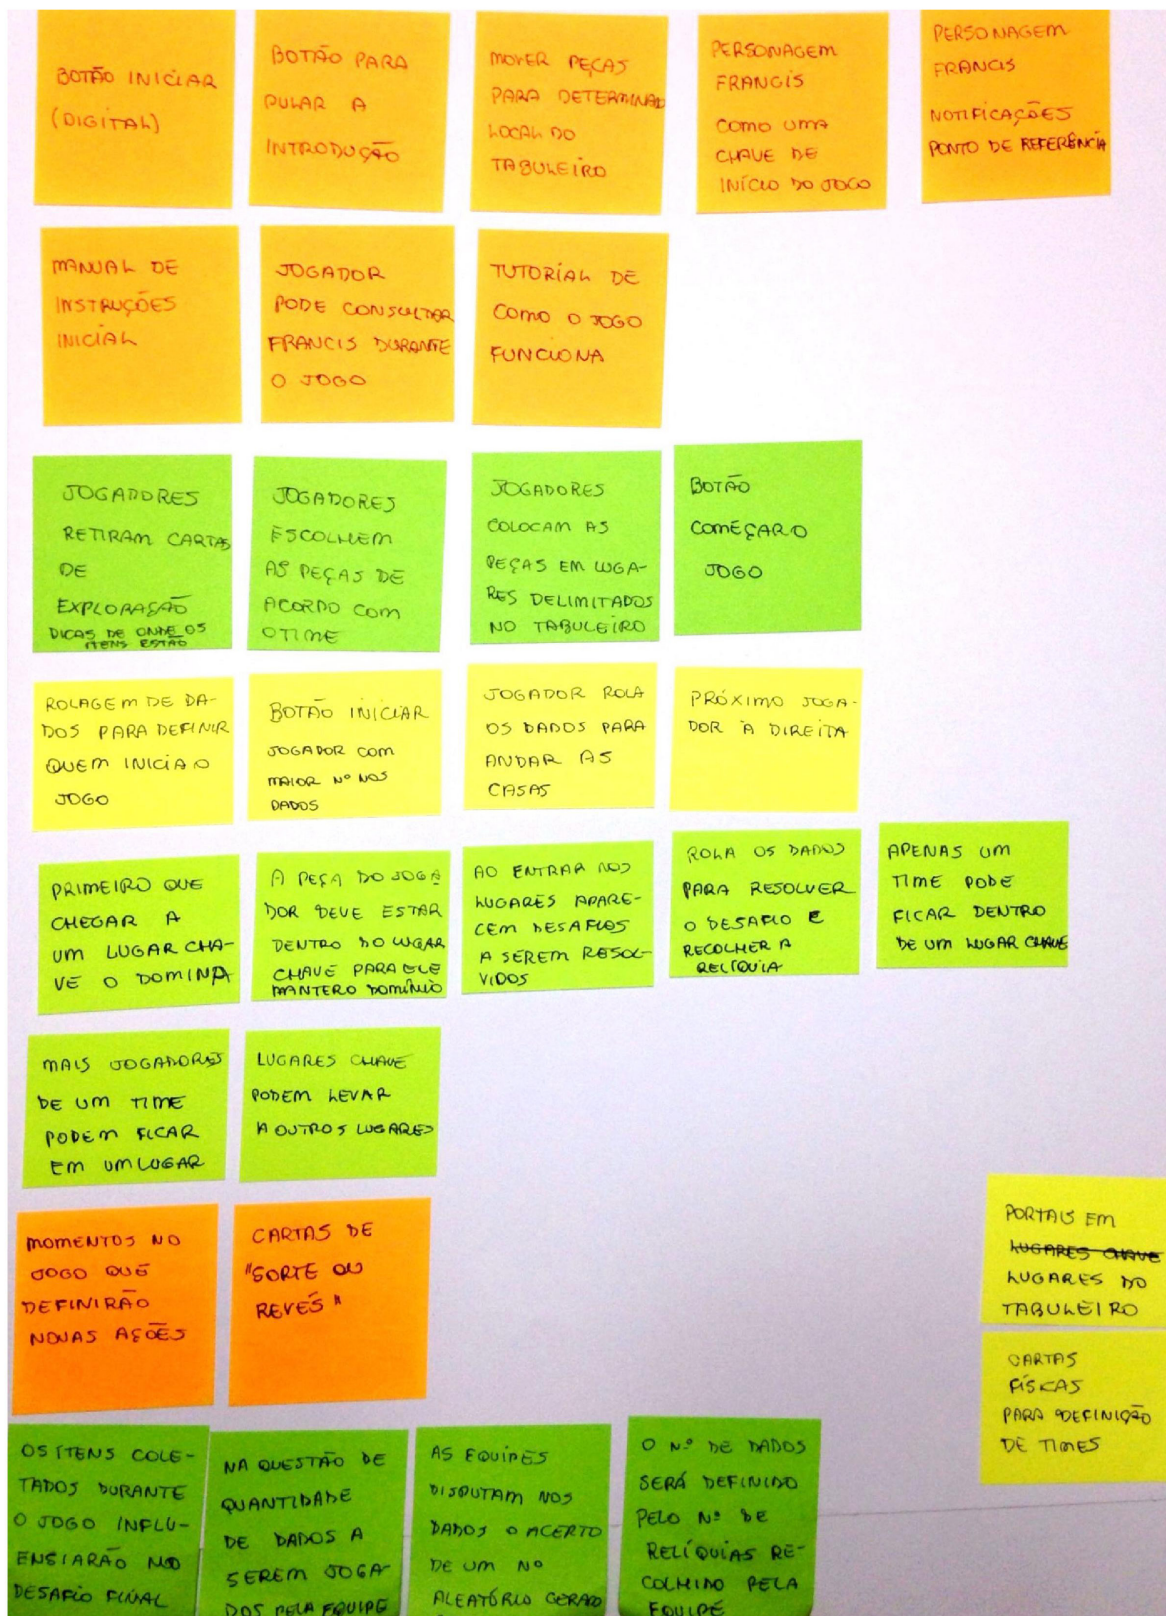 BOTÃO INICIAR
(DIGITAL)
BOTÃO PARA
PULAR A
INTRODUÇÃO
MOVER PEÇAS
PARA DETERMINADO
LOCAL DO
TABULEIRO
PERSONAGEM
FRANCIS
COMO UMA
CHAVE DE
INÍCIO DO JOGO
PERSONAGEM
FRANCIS
NOTIFICAÇÕES
PONTO DE REFERÊNCIA
MANUAL DE
INSTRUÇÕES
INICIAL
JOGADOR
PODE CONSULTAR
FRANCIS DURANTE
O JOGO
TUTORIAL DE
COMO O JOGO
FUNCIONA
JOGADORES
RETIRAM CARTAS
DE
EXPLORAÇÃO
DICAS DE ONDE OS
ITENS ESTÃO
JOGADORES
ESCOLHEM
AS PEÇAS DE
ACORDO COM
O TIME
JOGADORES
COLOCAM AS
PEÇAS EM LUGA-
RES DELIMITADOS
NO TABULEIRO
BOTÃO
COMEÇAR O
JOGO
ROLAGEM DE DA-
DOS PARA DEFINIR
QUEM INICIA O
JOGO
BOTÃO INICIAR
JOGADOR COM
MAIOR Nº NOS
DADOS
JOGADOR ROLA
OS DADOS PARA
ANDAR AS
CASAS
PRÓXIMO JOGA-
DOR À DIREITA
PRIMEIRO QUE
CHEGAR A
UM LUGAR CHA-
VE O DOMINA
A PEÇA DO JOGA
DOR DEVE ESTAR
DENTRO DO LUGAR
CHAVE PARA ELE
MANTER O DOMÍNIO
AO ENTRAR NOS
LUGARES APARE-
CEM DESAFIOS
A SEREM RESOL-
VIDOS
ROLA OS DADOS
PARA RESOLVER
O DESAFIO E
RECOLHER A
RELÍQUIA
APENAS UM
TIME PODE
FICAR DENTRO
DE UM LUGAR CHAVE
MAIS JOGADORES
DE UM TIME
PODEM FICAR
EM UM LUGAR
LUGARES CHAVE
PODEM LEVAR
A OUTROS LUGARES
MOMENTOS NO
JOGO QUE
DEFINIRÃO
NOVAS AÇÕES
CARTAS DE
"SORTE OU
REVÉS"
PORTAIS EM
LUGARES CHAVE
LUGARES DO
TABULEIRO
CARTAS
FÍSICAS
PARA DEFINIÇÃO
DE TIMES
OS ITENS COLE-
TADOS DURANTE
O JOGO INFLU-
ENSIARÃO NO
DESAFIO FINAL
NA QUESTÃO DE
QUANTIDADE
DE DADOS A
SEREM JOGA-
DOS PELA EQUIPE
AS EQUIPES
DISPUTAM NOS
DADOS O ACERTO
DE UM Nº
ALEATÓRIO GERADO
O Nº DE DADOS
SERÁ DEFINIDO
PELO Nº DE
RELÍQUIAS RE-
COLHIDO PELA
EQUIPE